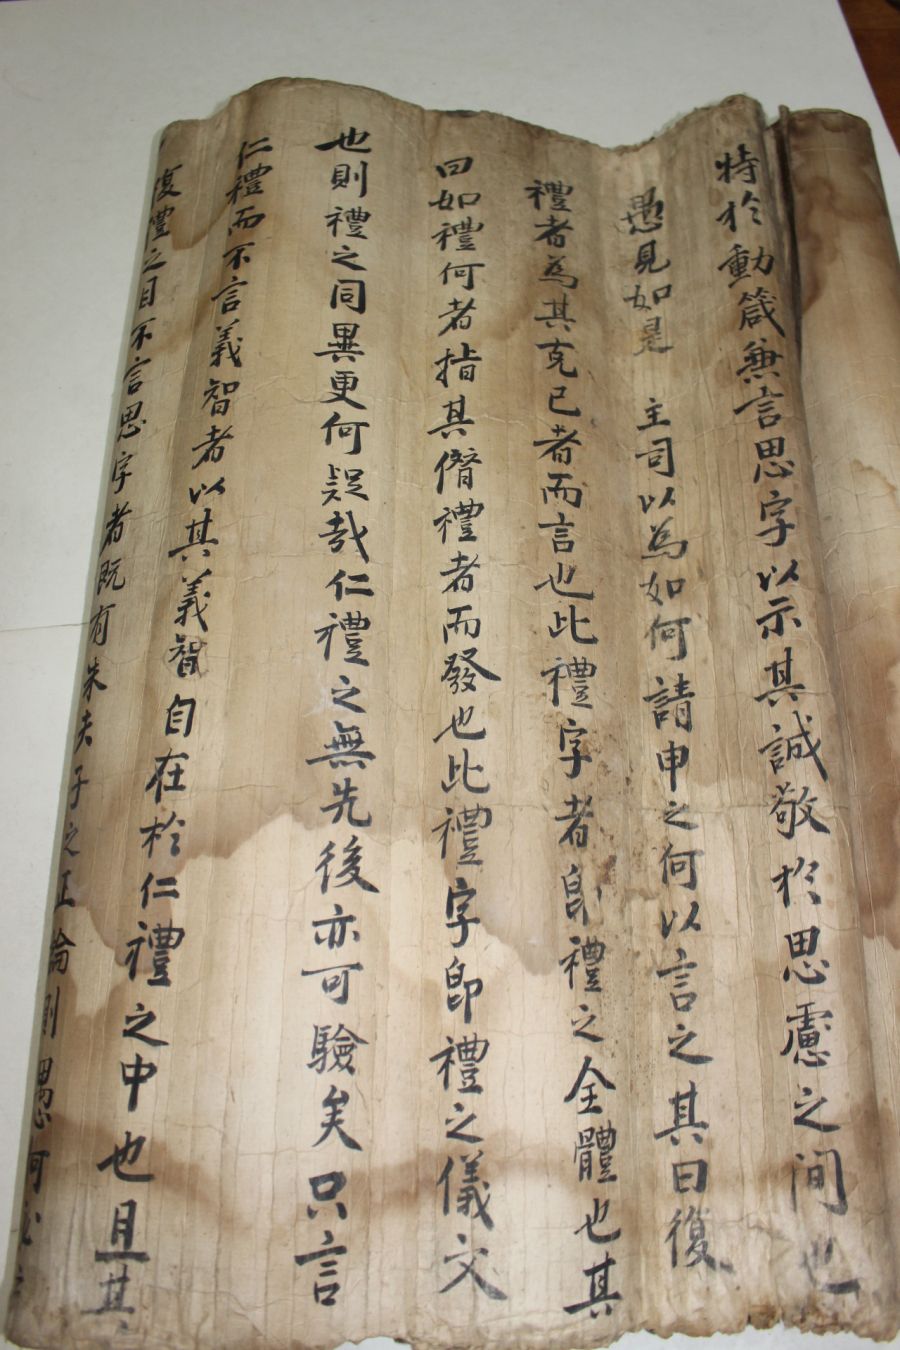 特於動箴兼言思字以示其誠敬於思慮之間也
愚見如是 主司以為如何請申之何以言之其曰復
禮者為其克已者而言也此禮字者卽禮之全體也其
曰如禮何者指其僭禮者而發也比禮字卽禮之儀文
也則禮之同異更何疑哉仁禮之無先後亦可驗矣只言
仁禮而不言義智者以其義智自在於仁禮之中也且其
復禮之目不言思字者旣有朱夫子之正論則愚何必